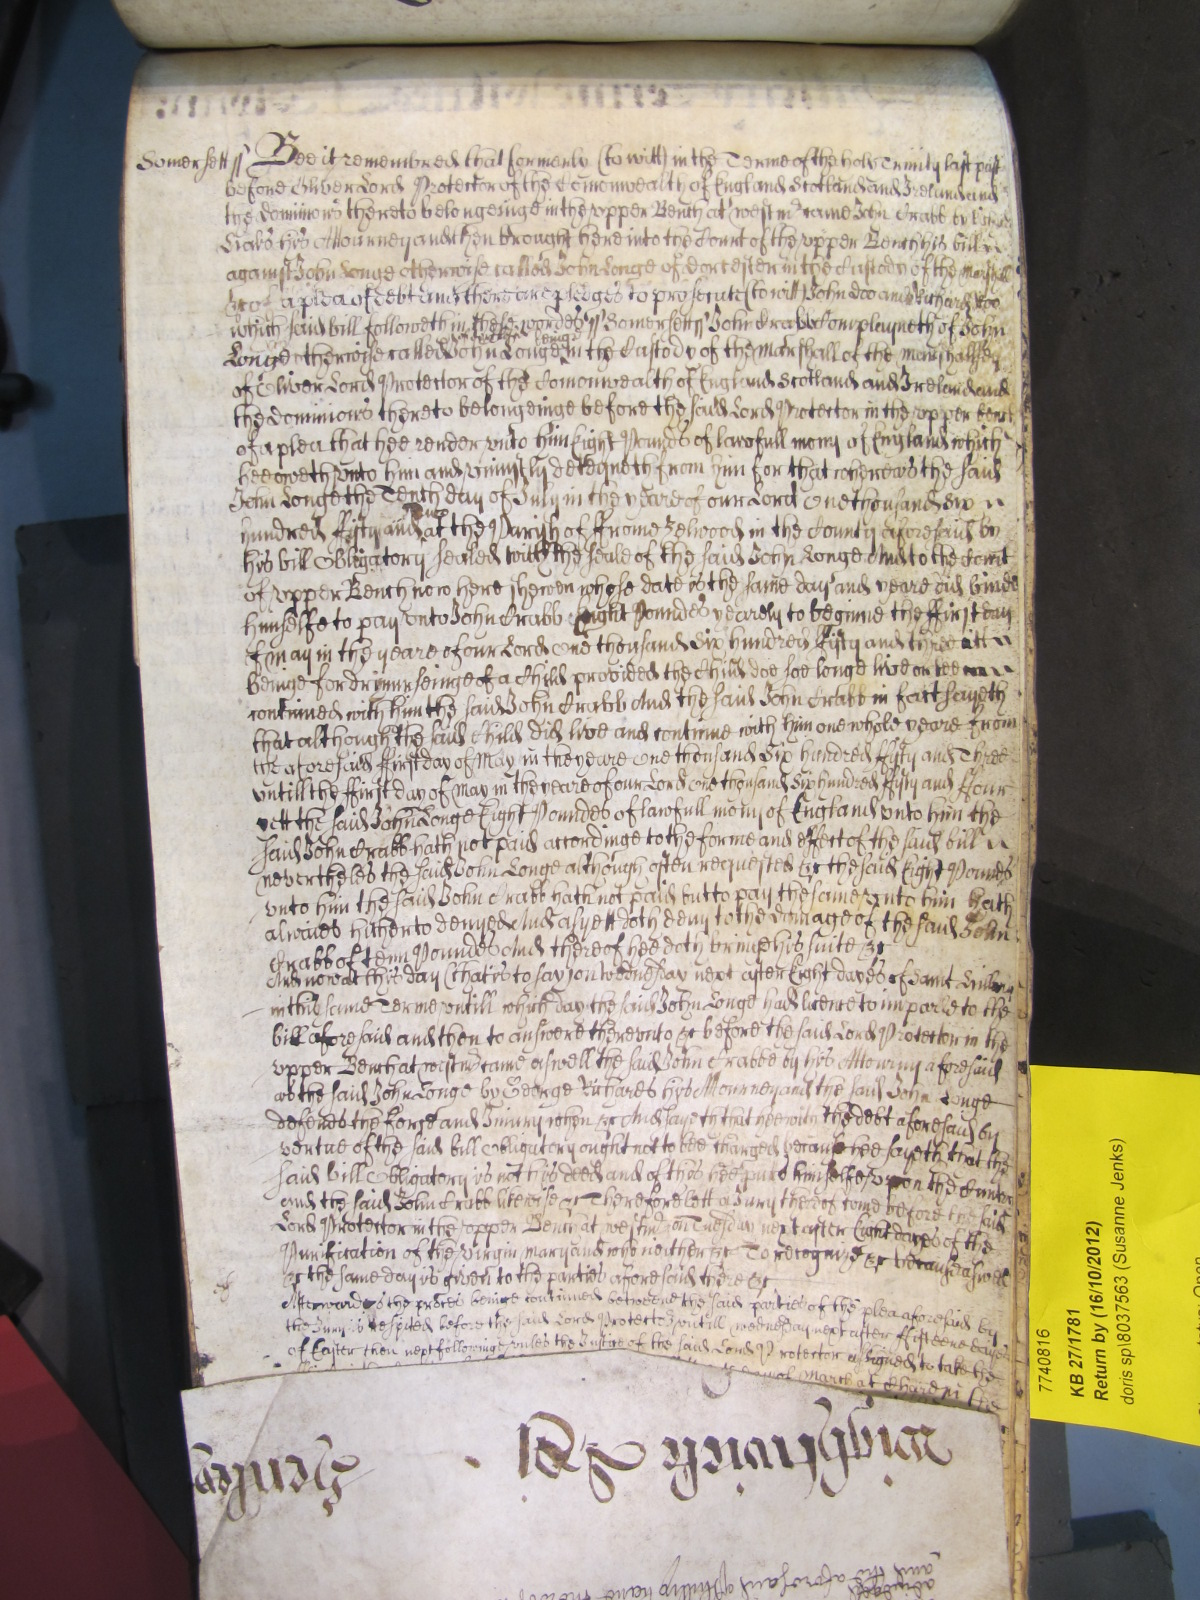 Somersett ss Bee it remembred that formerly (to witt) in the Terme of the holy Trinity last past
before Oliver Lord Protector of the Comonwealth of England Scotland and Ireland and
the dominions thereto belongeinge in the vpper Bench at westmr came John Crabb by
his Attourney and then brought here into the Court of the vpper Bench his bill
against John Longe otherwise called John Longe of in the Custody of the Marshall
&c of a plea of debt and there are pledges to prosecute (to witt) John doo and Richard Roo
which said bill followeth in these wordes ss Somersett ss John Crabb Complayneth of John
Longe otherwise called John Longe beinge in the Custody of the Marshall of the Marshallsey
of Oliver Lord Protector of the Comonwealth of England Scotland and Ireland and
the dominions thereto belongeinge before the said Lord Protector in the vpper Bench
of a plea that hee render vnto him Eight Poundes of lawfull mony of England which
hee oweth vnto him and vniustly deteyneth from him for that whereas the said
John Longe the Tenth day of July in the yeare of our Lord One thousand Six
hundred fifty and Two at the Parish of ffroome Zelwood in the County aforesaid by
his bill Obligatory sealed with the seale of the said John Longe And to the Court
of vpper Bench now here shewen whose date is the same day and yeare did binde
himselfe to pay vnto John Crabb Eight Poundes yearely to beginne the ffirst day
of may in the yeare of our Lord One thousand Six hundred fifty and three itt
beinge for dry nurseinge of a Child provided the Child doe soe longe live or bee
contynued with him the said John Crabb And the said John Crabb in fact sayeth
that although the said Child did live and contynue with him one whole yeare from
the aforesaid ffirst day of May in the yeare One thousand Six hundred fifty and Three
vntill the ffirst day of May in the yeare of our Lord One thousand Six hundred fifty and ffour
yett the said John Longe Eight Poundes of lawfull mony of England vnto him the
said John Crabb hath not paid accordinge to the forme and effect of the said bill
neverthelesse the said John Longe although often requested &c the said Eight Poundes
vnto him the said John Crabb hath not paid but to pay the same vnto him hath
alwaies hitherto denyed And as yett doth deny to the damage of the said John
Crabb of tenn Poundes And thereof hee doth bringe his suite &c
And now at this day (that is to say) on wednesday next after Eight dayes of Saint Hillary
in this same Terme vntill which day the said John Longe had licence to imparle to the
bill aforesaid and then to answere therevnto &c before the said Lord Protector in the
vpper Bench at westmr came aswell the said John Crabbe by his Attorny aforesaid
as the said John Longe by George Richards his Attourney and the said John Longe
defends the force and Iniury when &c And sayeth that hee with the debt aforesaid by
vertue of the said bill Obligatory ought not to bee charged because hee sayeth that the
said bill Obligatory is not his deed and of this hee putt himselfe vpon the Cuntry
and the said John Crabb likewise &c Therefore lett a Jury thereof come before the said
Lord Protector in the vpper Bench at westmr on Tuesday next after Eight dayes of the
Purification of the Virgin mary and who neither &c To recognize &c because aswell
&c the same day is given to the parties aforesaid there &c
Afterwards the proces beinge continued betweene the said parties of the plea aforesaid by
the Jury is respited before the said Lord Protector vntill wednesday next after ffifteene dayes
of Easter then next followinge vnles the Justice of the said Lord Protector assigned to take the
March at Chard in the
7740816
KB 27/1781
Return by (16/10/2012)
doris sp\8037563 (Susanne Jenks)